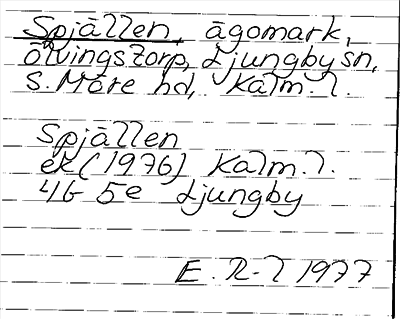 Spjällen, ägomark,
Ölvingstorp, Ljungby sn,
S. Möre hd, Kalm. l.
Spjällen
ek (1976) Kalm. l.
4G 5e Ljungby
E. R-l 1977